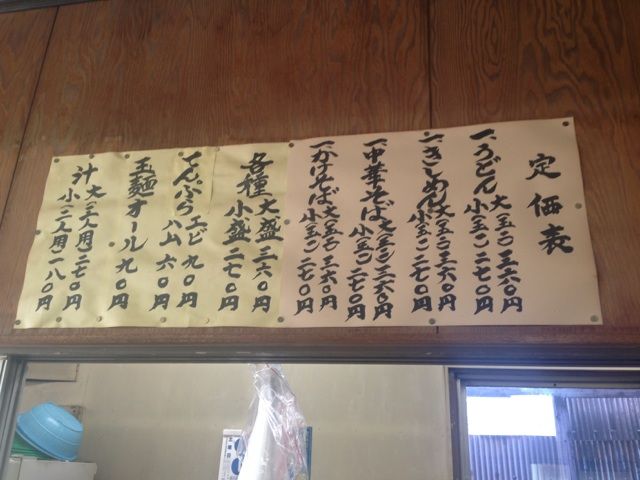 定価表
一、うどん 大(玉二)三六〇円
小(玉一)二七〇円
一、きしめん 大(玉二)三六〇円
小(玉一)二七〇円
一、中華そば 大(玉二)三六〇円
小(玉一)二七〇円
一、かけそば 大(玉二)三六〇円
小(玉一)二七〇円
各種 大盛 三六〇円
小盛 二七〇円
てんぷら エビ 九〇円
ハム 六〇円
玉麺オール 九〇円
汁 大(三人用)二七〇円
小(二人用)一八〇円